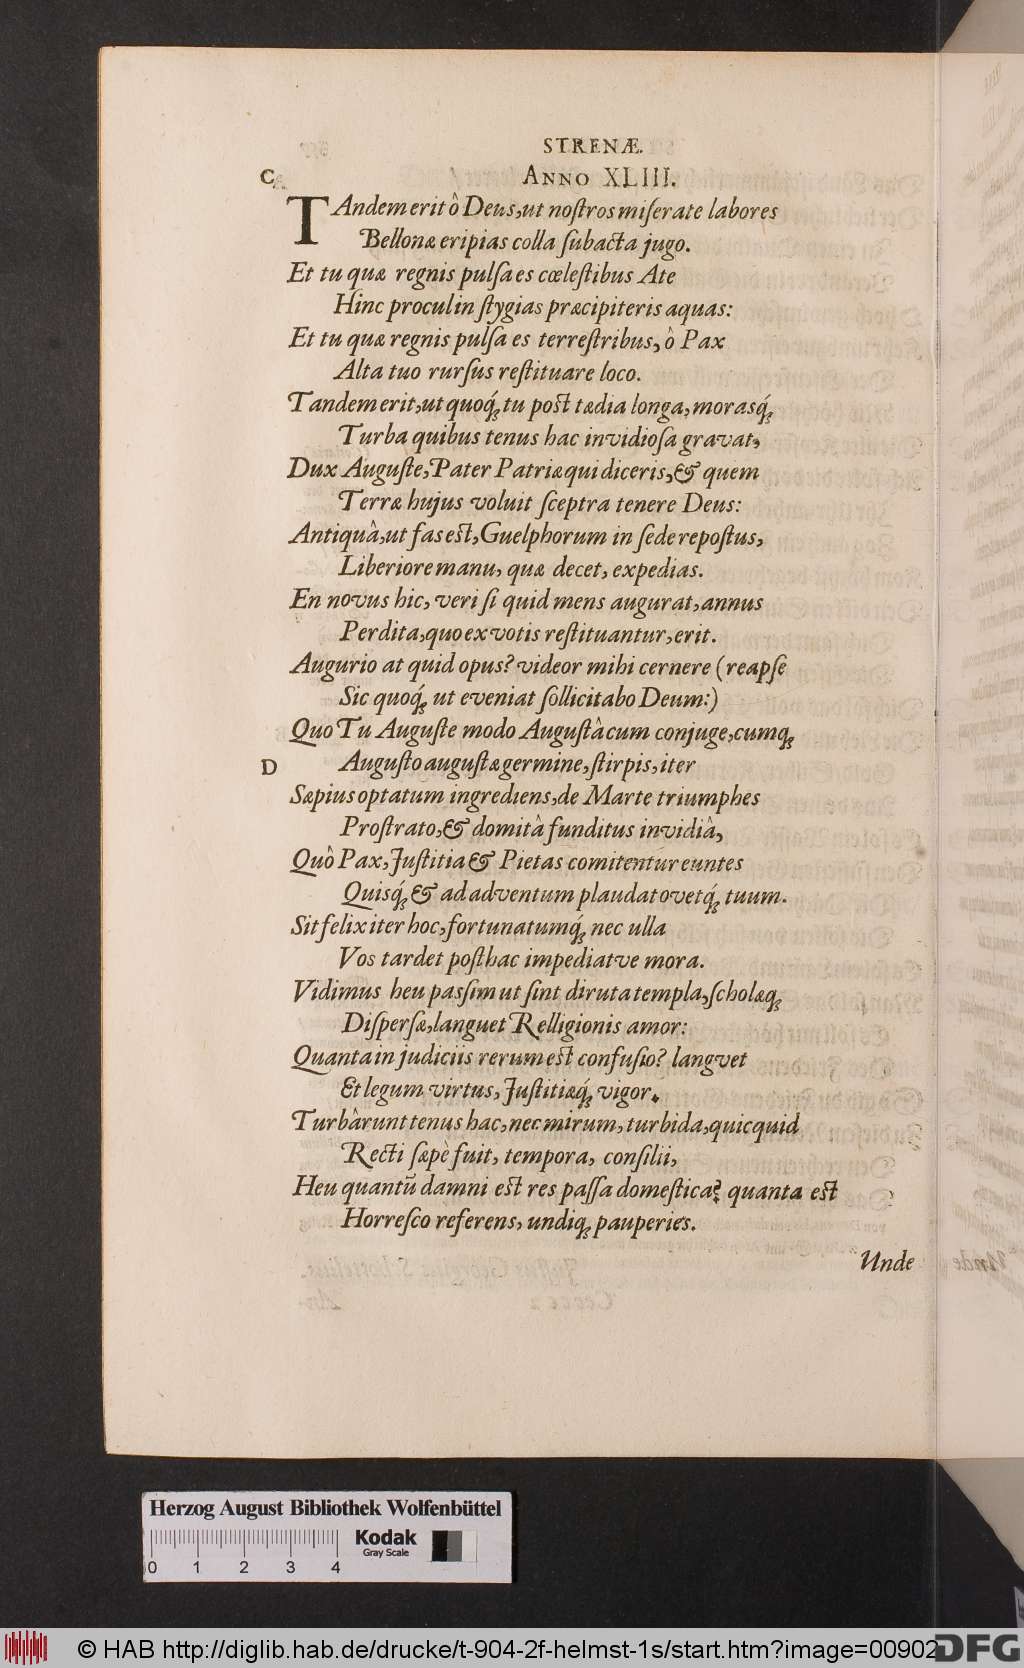 STRENÆ.
C
ANNO XLIII.
TAndem erit ô Deus, ut noſtros miſerate labores
Bellonæ eripias colla ſubacta jugo.
Et tu quæ regnis pulſa es cœleſtibus Ate
Hinc procul in ſtygias præcipiteris aquas:
Et tu quæ regnis pulſa es terreſtribus, ô Pax
Alta tuo rurſus reſtituare loco.
Tandem erit, ut quoq́; tu poſt tædia longa, morasq́;
Turba quibus tenus hac invidioſa gravat,
Dux Auguſte, Pater Patriæ qui diceris, & quem
Terræ hujus voluit ſceptra tenere Deus:
Antiquâ, ut fas eſt, Guelphorum in ſede repoſtus,
Liberiore manu, quæ decet, expedias.
En novus hic, veri ſi quid mens augurat, annus
Perdita, quo ex votis reſtituantur, erit.
Augurio at quid opus? videor mihi cernere (reapſe
Sic quoq́; ut eveniat ſollicitabo Deum:)
Quo Tu Auguſte modo Auguſtâ cum conjuge, cumq;
D
Auguſto auguſtæ germine, ſtirpis, iter
Sæpius optatum ingrediens, de Marte triumphes
Proſtrato, & domitâ funditus invidiâ,
Quô Pax, Juſtitia & Pietas comitentur euntes
Quisq́; & ad adventum plaudat ovetq́; tuum.
Sit felix iter hoc, fortunatumq́; nec ulla
Vos tardet poſthac impediatve mora.
Vidimus heu paſsim ut ſint diruta templa, ſcholæq;
Diſperſæ, languet Relligionis amor:
Quanta in judiciis rerum eſt confuſio? langvet
Et legum virtus, Juſtitiæq́; vigor.
Turbârunt tenus hac, nec mirum, turbida, quicquid
Recti ſæpè fuit, tempora, conſilii,
Heu quantū damni eſt res paſſa domeſtica? quanta eſt
Horreſco referens, undiq; pauperies.
Unde
Herzog August Bibliothek Wolfenbüttel
Kodak
Gray Scale
0 1 2 3 4
© HAB http://diglib.hab.de/drucke/t-904-2f-helmst-1s/start.htm?image=00902
DFG